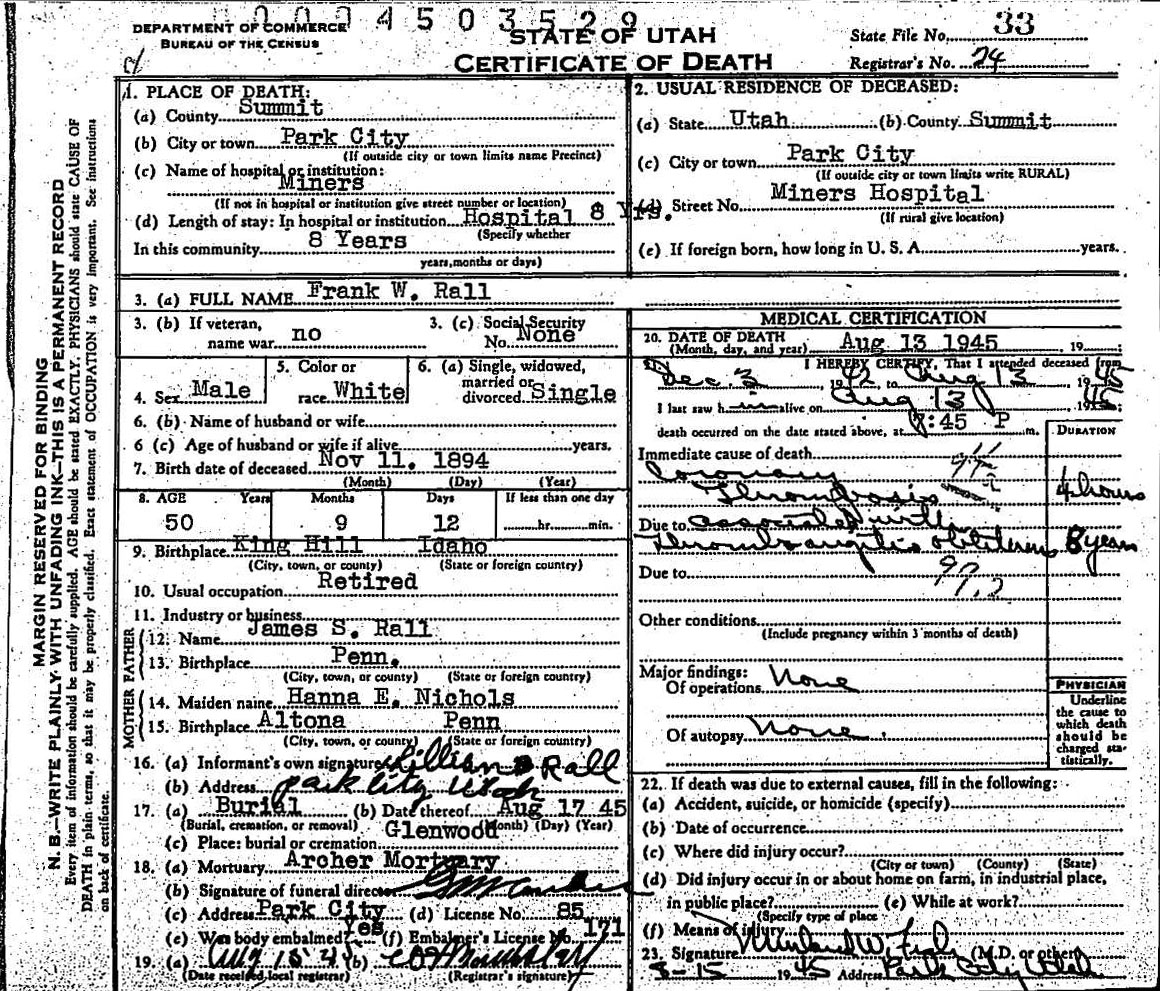 0 0 0 4 5 0 3 5 2 9
DEPARTMENT OF COMMERCE
BUREAU OF THE CENSUS
STATE OF UTAH
CERTIFICATE OF DEATH
State File No. 33
Registrar's No. 24
MARGIN RESERVED FOR BINDING
N. B.—WRITE PLAINLY WITH UNFADING INK—THIS IS A PERMANENT RECORD
Every item of information should be carefully supplied. AGE should be stated EXACTLY. PHYSICIANS should state CAUSE OF
DEATH in plain terms, so that it may be properly classified. Exact statement of OCCUPATION is very important. See instructions
on back of certificate.
1. PLACE OF DEATH:
(a) County Summit
(b) City or town Park City
(If outside city or town limits name Precinct)
(c) Name of hospital or institution:
Miners
(If not in hospital or institution give street number or location)
(d) Length of stay: In hospital or institution Hospital 8 Yrs.
(Specify whether
In this community 8 Years
years, months or days)
2. USUAL RESIDENCE OF DECEASED:
(a) State Utah (b) County Summit
(c) City or town Park City
(If outside city or town limits write RURAL)
(d) Street No. Miners Hospital
(If rural give location)
(e) If foreign born, how long in U. S. A. years.
3. (a) FULL NAME Frank W. Rall
3. (b) If veteran, name war no
3. (c) Social Security No. None
4. Sex Male
5. Color or race White
6. (a) Single, widowed, married or divorced Single
6. (b) Name of husband or wife
6 (c) Age of husband or wife if alive years.
7. Birth date of deceased Nov 11. 1894
(Month) (Day) (Year)
8. AGE Years Months Days If less than one day
50 9 12 hr. min.
9. Birthplace King Hill Idaho
(City, town, or county) (State or foreign country)
10. Usual occupation Retired
11. Industry or business
FATHER
12. Name James S. Rall
13. Birthplace Penn.
(City, town, or county) (State or foreign country)
MOTHER
14. Maiden name Hanna E. Nichols
15. Birthplace Altona Penn
(City, town, or county) (State or foreign country)
16. (a) Informant's own signature Lillian Rall
(b) Address Park City Utah
17. (a) Burial (b) Date thereof Aug 17 45
(Burial, cremation, or removal) (Month) (Day) (Year)
(c) Place: burial or cremation Glenwood
18. (a) Mortuary Archer Mortuary
(b) Signature of funeral director
(c) Address Park City (d) License No. 85
(e) Was body embalmed? Yes (f) Embalmer's License No. 171
19. (a) Aug 15 45 (b)
(Date received local registrar) (Registrar's signature)
MEDICAL CERTIFICATION
20. DATE OF DEATH Aug 13 1945, 19
(Month, day, and year)
I HEREBY CERTIFY, That I attended deceased from
Dec 3 1942 to Aug 13 1945
I last saw him alive on Aug 13 1945;
death occurred on the date stated above, at :45 P m.
DURATION
Immediate cause of death
Coronary
Thrombosis 4 hours
Due to associated with
Thromboangitis obliterans 8 years
Due to
97.2
Other conditions
(Include pregnancy within 3 months of death)
Major findings:
Of operations None
Of autopsy None.
PHYSICIAN
Underline
the cause to
which death
should be
charged sta-
tistically.
22. If death was due to external causes, fill in the following:
(a) Accident, suicide, or homicide (specify)
(b) Date of occurrence
(c) Where did injury occur?
(City or town) (County) (State)
(d) Did injury occur in or about home on farm, in industrial place,
in public place? (e) While at work?
(Specify type of place
(f) Means of injury
23. Signature (M.D. or other)
8-15 1945 Address Park City Utah